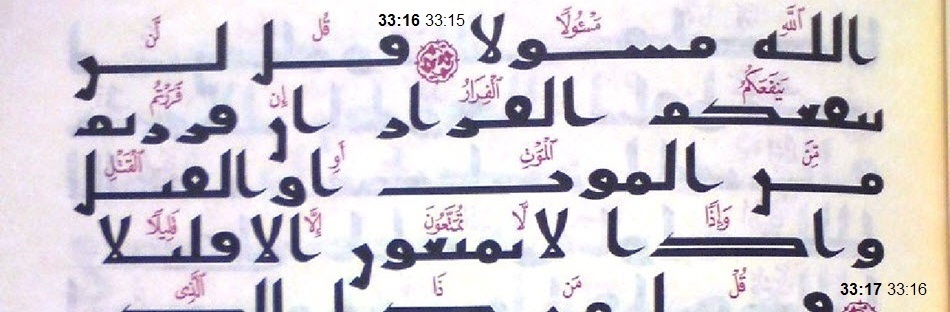 33:16 33:15
ٱللَّهِ مَسْـُٔولًا قُل لَّن
الله مسولا قل لن
يَنفَعَكُمُ ٱلْفِرَارُ إِن فَرَرْتُم
ينفعكم الفرار ان فررتم
مِّنَ ٱلْمَوْتِ أَوِ ٱلْقَتْلِ
من الموت او القتل
وَإِذًا لَّا تُمَتَّعُونَ إِلَّا قَلِيلًا
واذا لا تمتعون الا قليلا
33:17 33:16
قُلْ مَن ذَا ٱلَّذِى